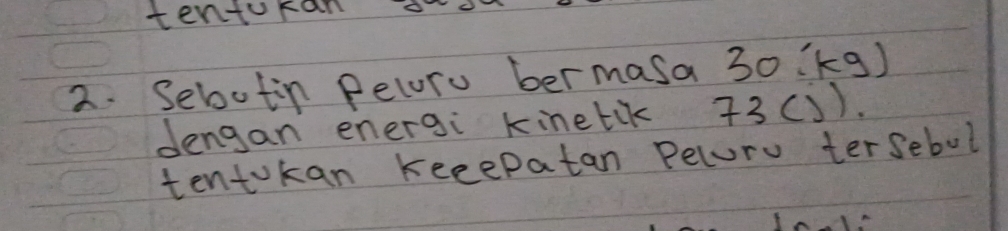 tentukan
2. Sebutin Peluru bermasa 30 (kg)
dengan energi kinetik 73 (J).
tentukan keeepatan Peluru tersebut